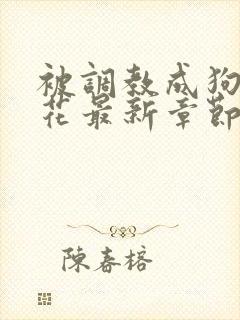 被調教成狗
花最新章節
陳春榕